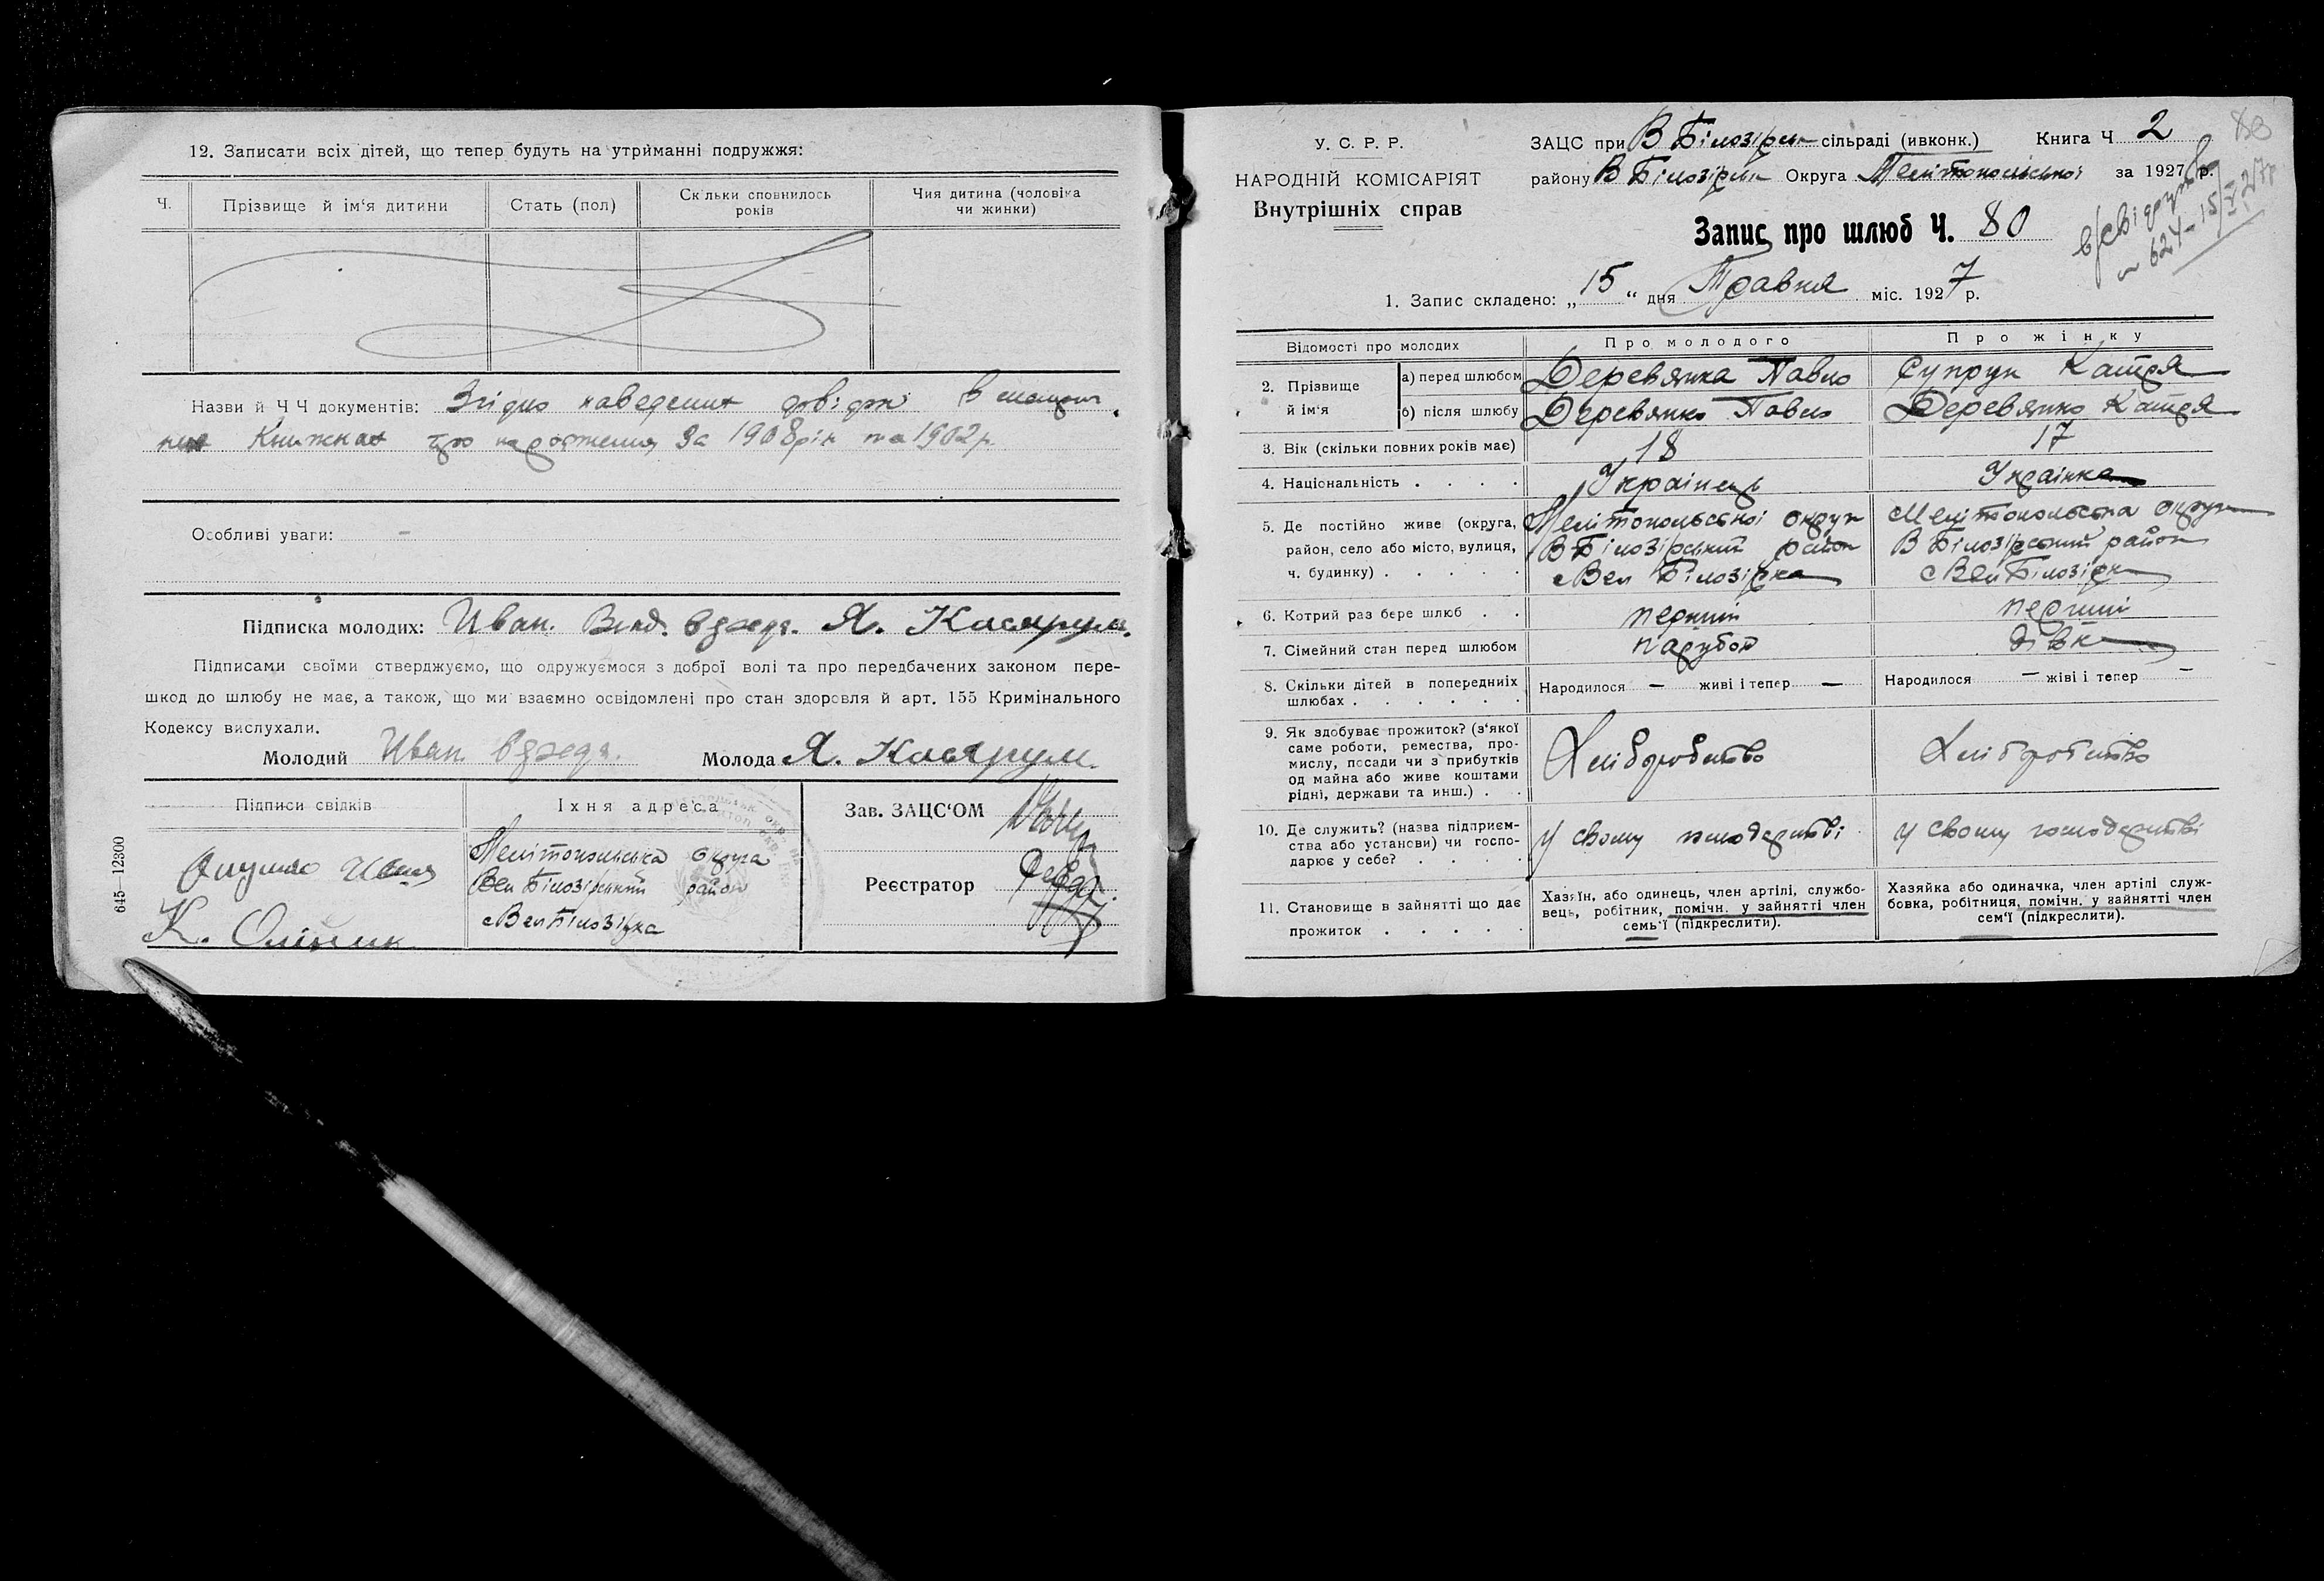 12. Записати всіх дітей, що тепер будуть на утриманні подружжя:
Ч. Прізвище й ім‘я дитини Стать (пол) Скільки сповнилось років Чия дитина (чоловіка чи жинки)
Назви й Ч Ч документів: Згідно наведених довідок в
Книжках про народження за 1908 рік та 1902 р.
Особливі уваги: –
Підписка молодих: Иван.
Підписами своїми стверджуємо, що одружуємося з доброї волі та про передбачених законом пере-
шкод до шлюбу не має, а також, що ми взаємно освідомлені про стан здоровля й арт. 155 Кримінального
Кодексу вислухали.
Молодий Иван. Молода Я.
Підписи свідків Їхня адреса Зав. ЗАЦС‘ОМ
Мелітопольська округа
Вел Білозірський район
с Вел Білозірка
Реєстратор
К. Олійник
645—12300
У. С. Р. Р.
НАРОДНІЙ КОМІСАРІЯТ
Внутрішніх справ
ЗАЦС при В Білозірськ сільраді (ивконк.) Книга Ч 2
району В Білозірськ Округа Мелітопольської за 1927 р.
Запис про шлюб Ч. 80
№ 624 – 15/V 27р
1. Запис складено: „15“ дня Травня міс. 1927 р.
Відомості про молодих Про молодого Про жінку
2. Прізвище й ім‘я а) перед шлюбом Деревянка Павло Супрун Катря
б) після шлюбу Деревянко Павло Деревянко Катря
3. Вік (скільки повних років має) 18 17
4. Національність . . . . Українець Українка
5. Де постійно живе (округа, Мелітопольської округи Мелітопольська округа
район, село або місто, вулиця, В Білозірський район В Білозірський район
ч. будинку) . . . . . с Вел Білозірка с Вел Білозірка
6. Котрий раз бере шлюб . . перший перший
7. Сімейний стан перед шлюбом парубок дівка
8. Скільки дітей в попередніх Народилося – живі і тепер – Народилося – живі і тепер –
шлюбах . . . . . .
9. Як здобуває прожиток? (з‘якої
саме роботи, ремества, про-
мислу, посади чи з прибутків Хліборобство Хліборобство
од майна або живе коштами
рідні, держави та инш.) . .
10. Де служить? (назва підприєм-
ства або установи) чи госпо- у свому господарстві у свому господарстві
дарює у себе? . . . .
11. Становище в зайнятті що дає
прожиток . . . . .
Хазяїн, або одинець, член артілі, службо-
вець, робітник, помічн. у зайнятті член
семь‘ї (підкреслити).
Хазяйка або одиначка, член артілі служ-
бовка, робітниця, помічн. у зайнятті член
сем‘ї (підкреслити).